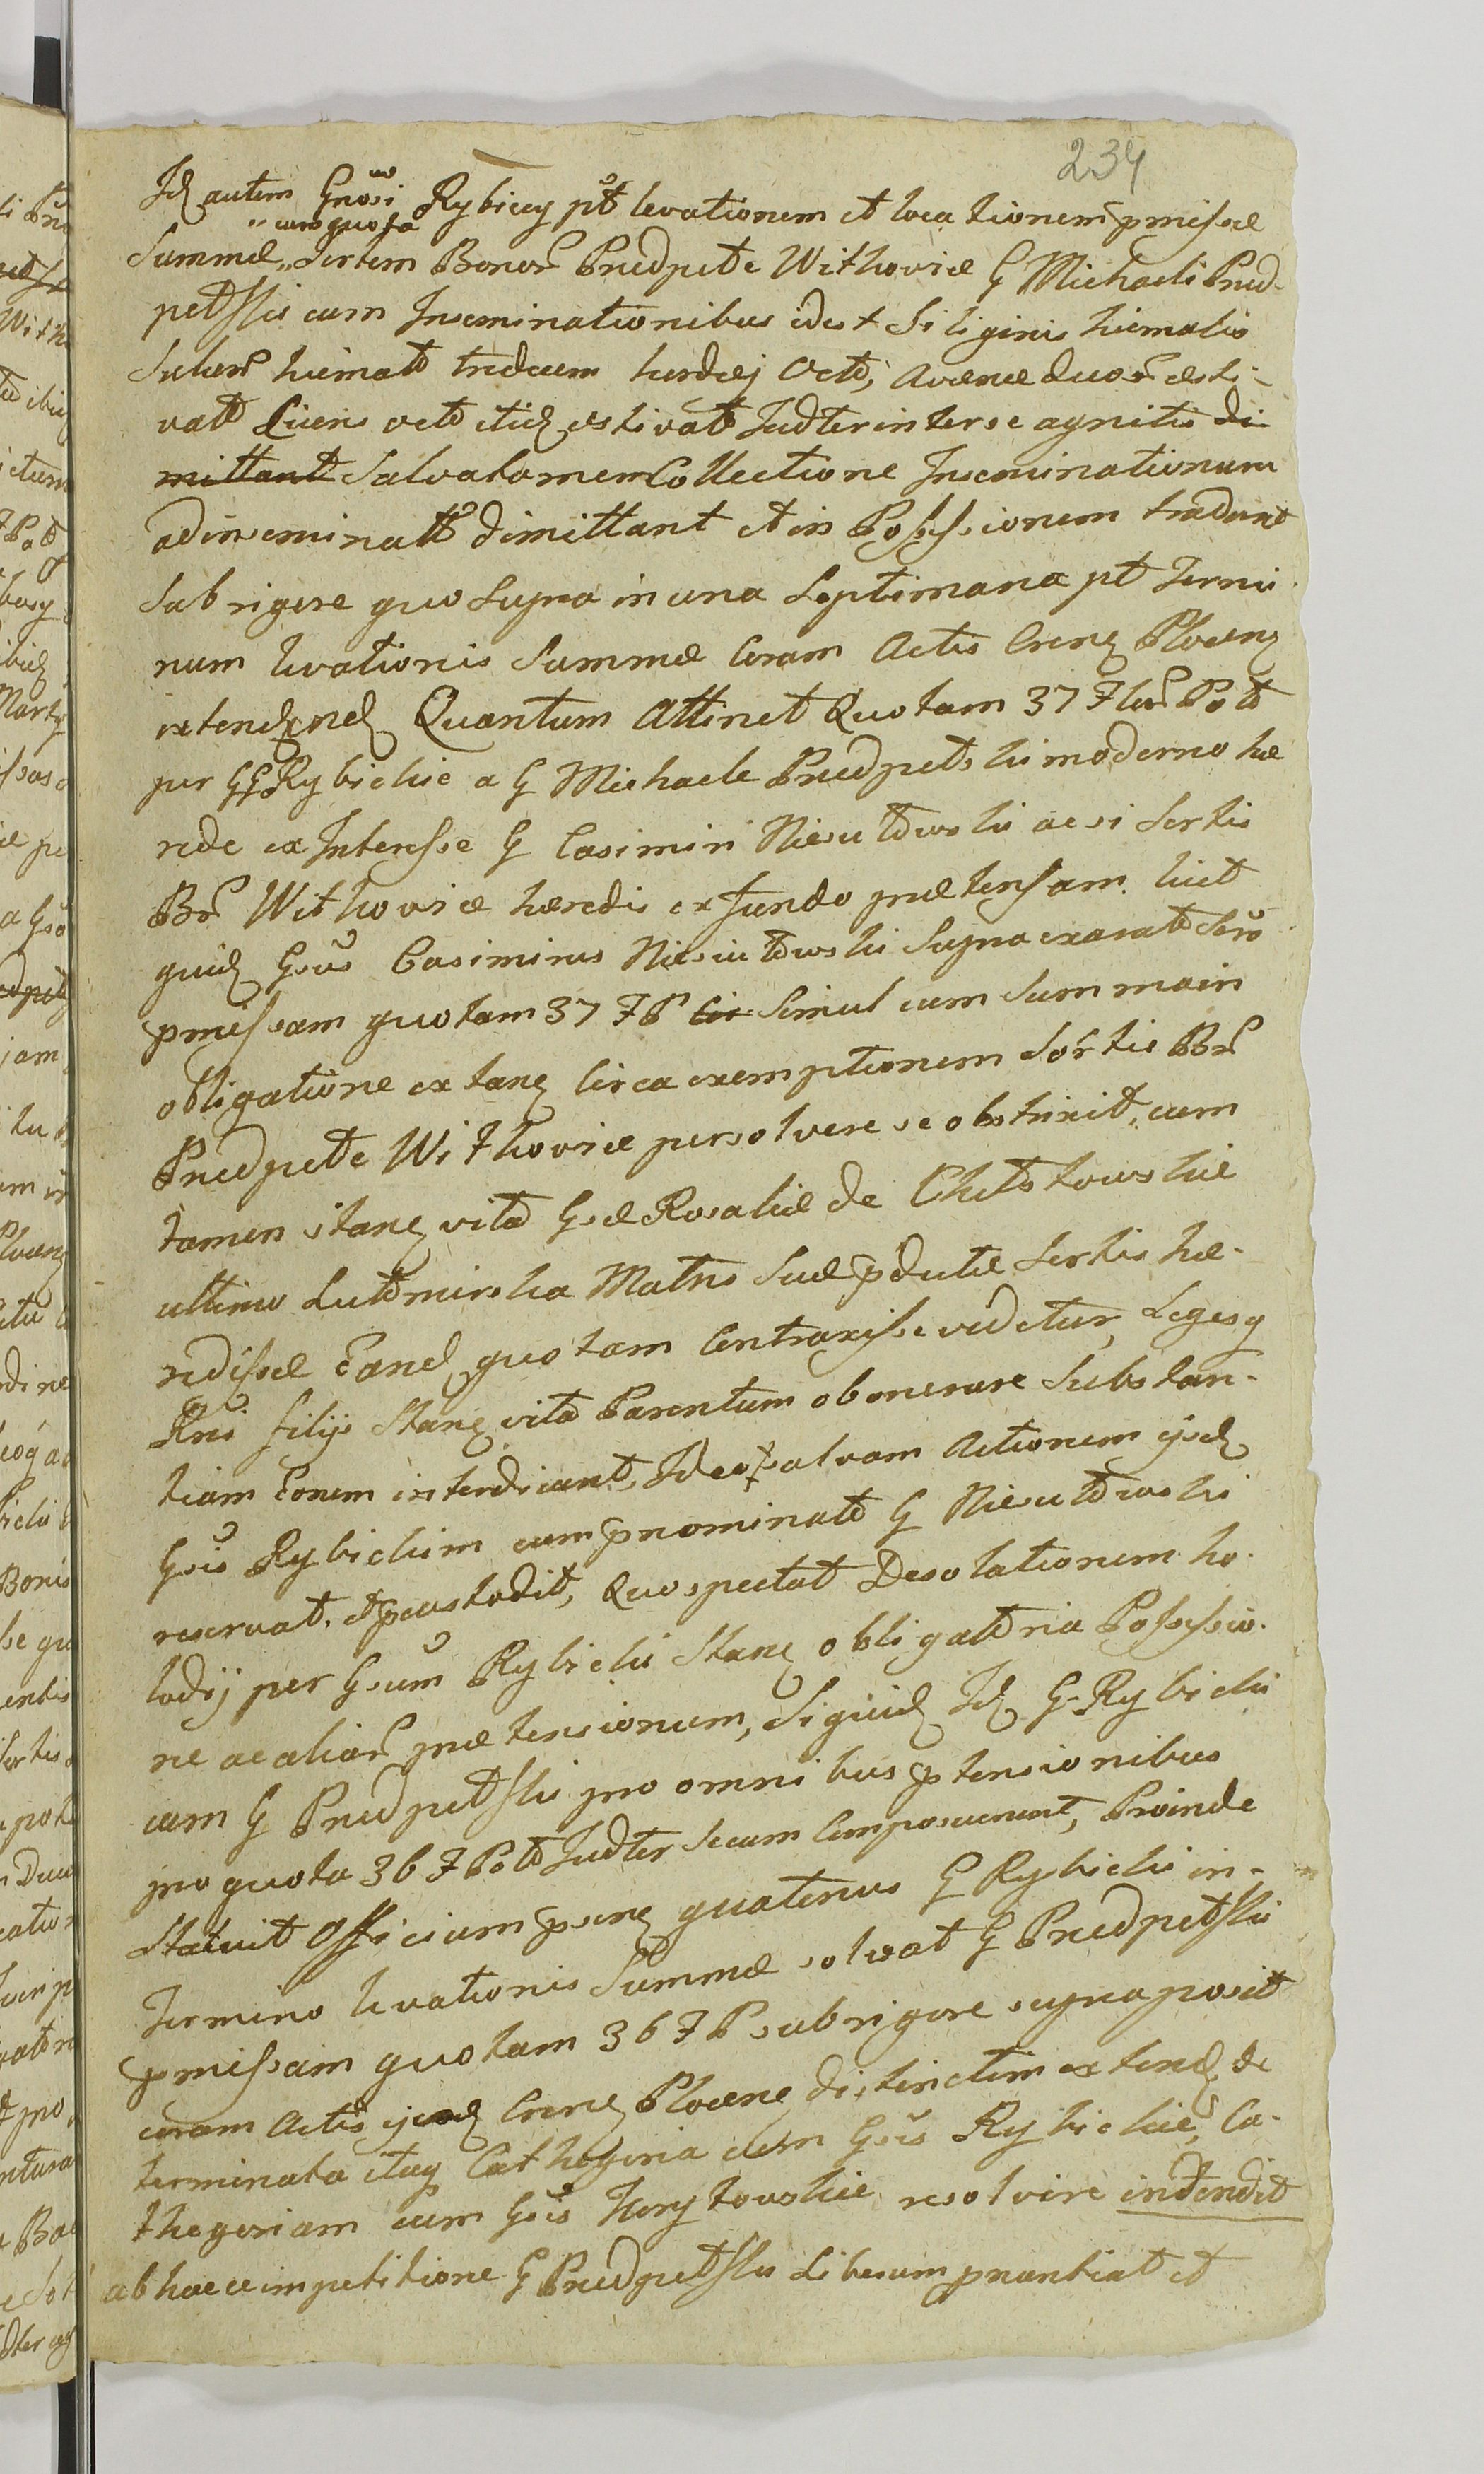 234
Id autem Gnosi Rybiccy pt levationem et locationem pmissæ
"cum quota
Summæ "Sortem Bonor Przedpełte Withoviæ G Michaeli Przed-
pełski cum Inseminationibus idest Siliginis hiemalis
Sulcor hiemal tredecim hordej Octo, Avenæ duor æsti-
val Ciceris octo itid æstival Judter inter se agnitis di
mittant Salva tamen Collectione Inseminationum
adinseminatt dimittant et in Possessionem tradant
Sub rigore quo Supra in una Septimana pt Termi
num levationis Summæ Coram Actis Crens Plocens
extenden Quantum Attinet Quotam 37 Flor Pol
per GG Rybickie a G Michaele Przedpełski moderno hæ
rede ex Interesse G Casimiri Niesułowski acsi Sortis
Br Withoviæ hæredis ex fundo prætensam. licet
quid Gsus Casimirus Niesiułowski Supra exarato Scro
pmissam quotam 37 FP Simul cum Summa in
obligatione extan Circa exemptionem Sortis Br
Przedpełte Withoviæ persolvere se obstrinxit, cum
tamen stane vita Gsæ Rosaliæ de Chełstowskie
ultimo Lutomirska Matris Suæ pdutæ Sortis hæ-
redissæ Eand quotam Contraxisse videtur, Legesq
Rni filijs Stane vita Parentum obonerare Substan-
tiam Eorum interdicant, Ideo salvam Actionem ijsd
Gsis Rybickim cum pnominato G Niesułowski
reservat. et pcustodit, Quo spectat Desolationem ho-
lodij per Gsum Rybicki Stane obligatoria Possessio-
ne ac aliar prætensionum, Siquid Id G Rybicki
cum G Przedpełski pro omnibus ptensionibus
pro quota 36 F Pol Judter Secum Composuerunt, Proinde
Statuit Officium psens quatenus G Rybicki in-
Termino levationis Summæ solvat G Przedpełski
pmissam quotam 36 FP sub rigore supraposit
coram Actis ijsd Crens Plocens distinctim extend, de
terminata itaq Cathegoria cum Gsis Rybickie, Ca-
thegoriam cum Gsis Korytowskie resolvere intendit
ab hacce impetitione G Przedpełski Liberum pnuntiat et